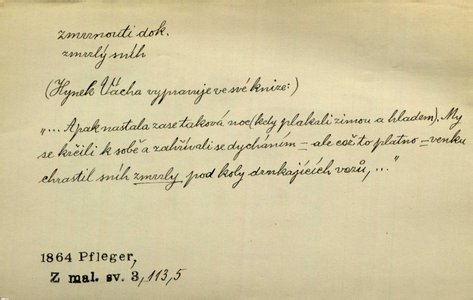 zmrznouti dok.
zmrzlý sníh
(Hynek Vácha vypravuje ve své knize:)
"... A pak nastala zase taková noc (kdy plakali zimou a hladem). My
se krčili k sobě a zahřívali se dycháním – ale což to platno – venku
chrastil sníh zmrzly pod koly drnkajících vozů, ..."
1864 Pfleger,
Z mal. sv. 3, 113,5